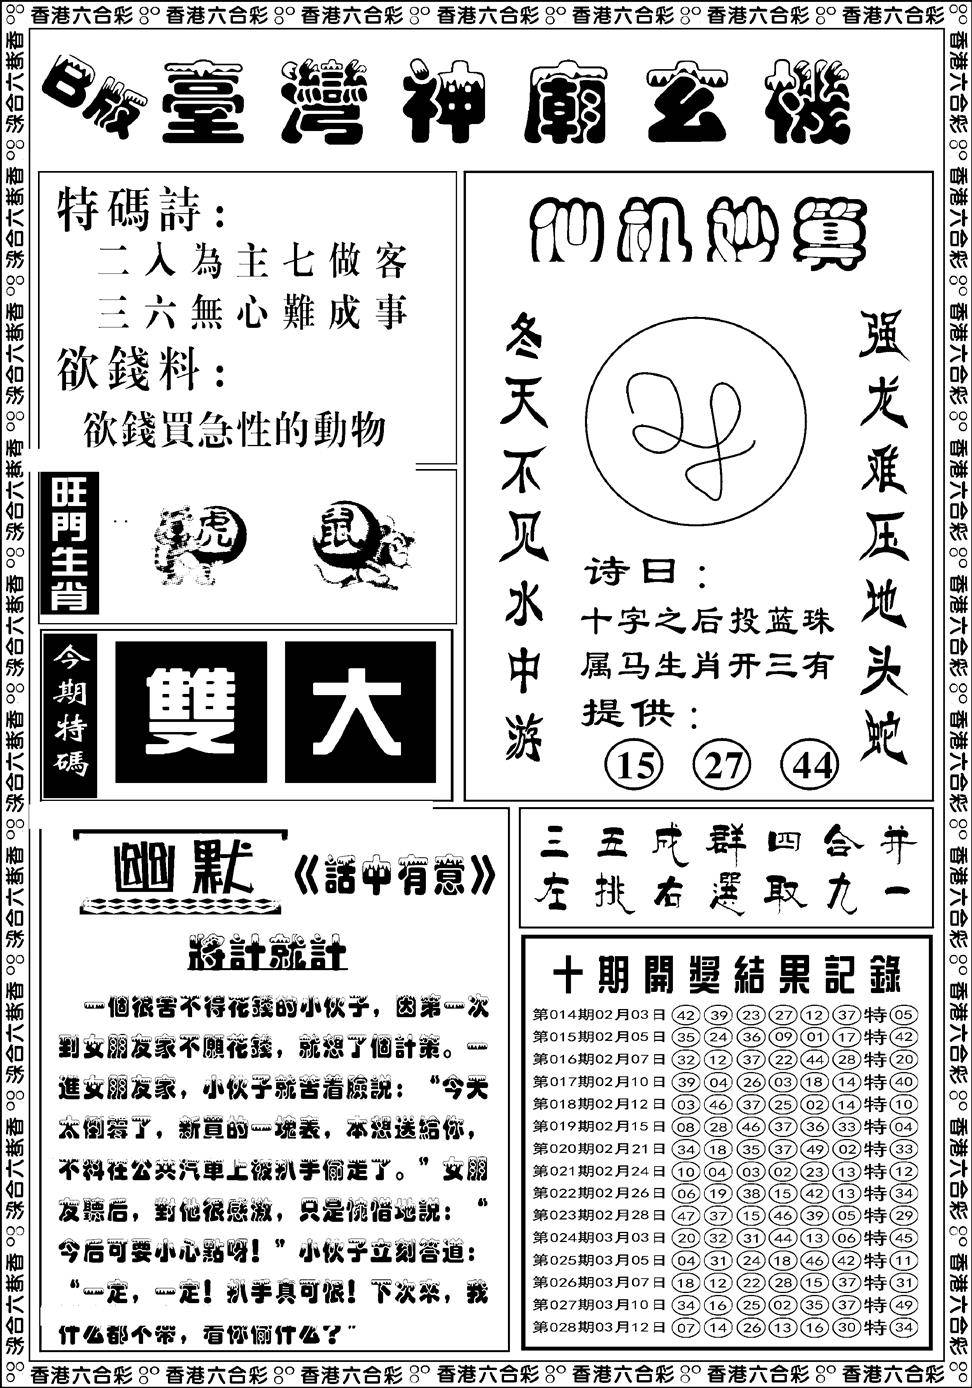 香港六合彩 香港六合彩 香港六合彩 香港六合彩 香港六合彩 香港六合彩 香港六合彩
B版 臺灣神廟玄機
特碼詩:
二入為主七做客
三六無心難成事
欲錢料:
欲錢買急性的動物
旺門生肖
虎 鼠
今期特碼
雙 大
仙机妙算
冬天不见水中游
强龙难压地头蛇
诗曰:
十字之后投蓝珠
属马生肖开三有
提供:
15 27 44
幽默《話中有意》
將計就計
一個很苦不得花錢的小伙子，因第一次
到女朋友家不願花錢，就想了個計策。一
進女朋友家，小伙子就苦着臉説：“今天
太倒霉了，新買的一塊表，本想送給你，
不料在公共汽車上被扒手偷走了。”女朋
友聽后，對他很感激，只是惋惜地説：“
今后可要小心點呀！”小伙子立刻答道：
“一定，一定！扒手真可恨！下次來，我
什么都不帶，看你偷什么？”
三五成群四合并
左挑右選取九一
十期開獎結果記錄
第014期02月03日 42 39 23 27 12 37 特 05
第015期02月05日 35 24 36 09 01 17 特 42
第016期02月07日 32 12 37 22 44 28 特 20
第017期02月10日 39 04 26 03 18 14 特 40
第018期02月12日 03 46 37 25 02 14 特 10
第019期02月15日 08 28 46 37 36 33 特 04
第020期02月21日 34 18 35 37 49 02 特 33
第021期02月24日 10 04 03 02 23 13 特 12
第022期02月26日 06 19 38 15 42 13 特 34
第023期02月28日 47 37 15 46 39 05 特 29
第024期03月03日 20 32 31 44 13 06 特 45
第025期03月05日 04 31 24 18 46 42 特 11
第026期03月07日 18 12 22 28 15 37 特 31
第027期03月10日 34 16 25 02 35 37 特 49
第028期03月12日 07 14 26 13 16 30 特 34
香港六合彩 香港六合彩 香港六合彩 香港六合彩 香港六合彩 香港六合彩 香港六合彩